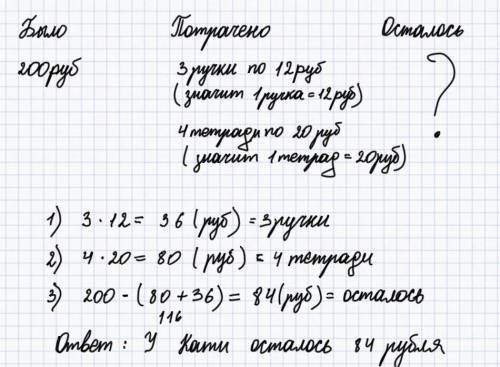 Было Потрачено Осталось
200руб 3 ручки по 12руб ?
(значит 1 ручка = 12руб)
4 тетради по 20 руб
(значит 1 тетрад = 20руб)
1) 3 · 12 = 36 (руб) = 3 ручки
2) 4 · 20 = 80 (руб) = 4 тетради
3) 200 - (80 + 36) = 84 (руб) = осталось
116
Ответ: У Кати осталось 84 рубля